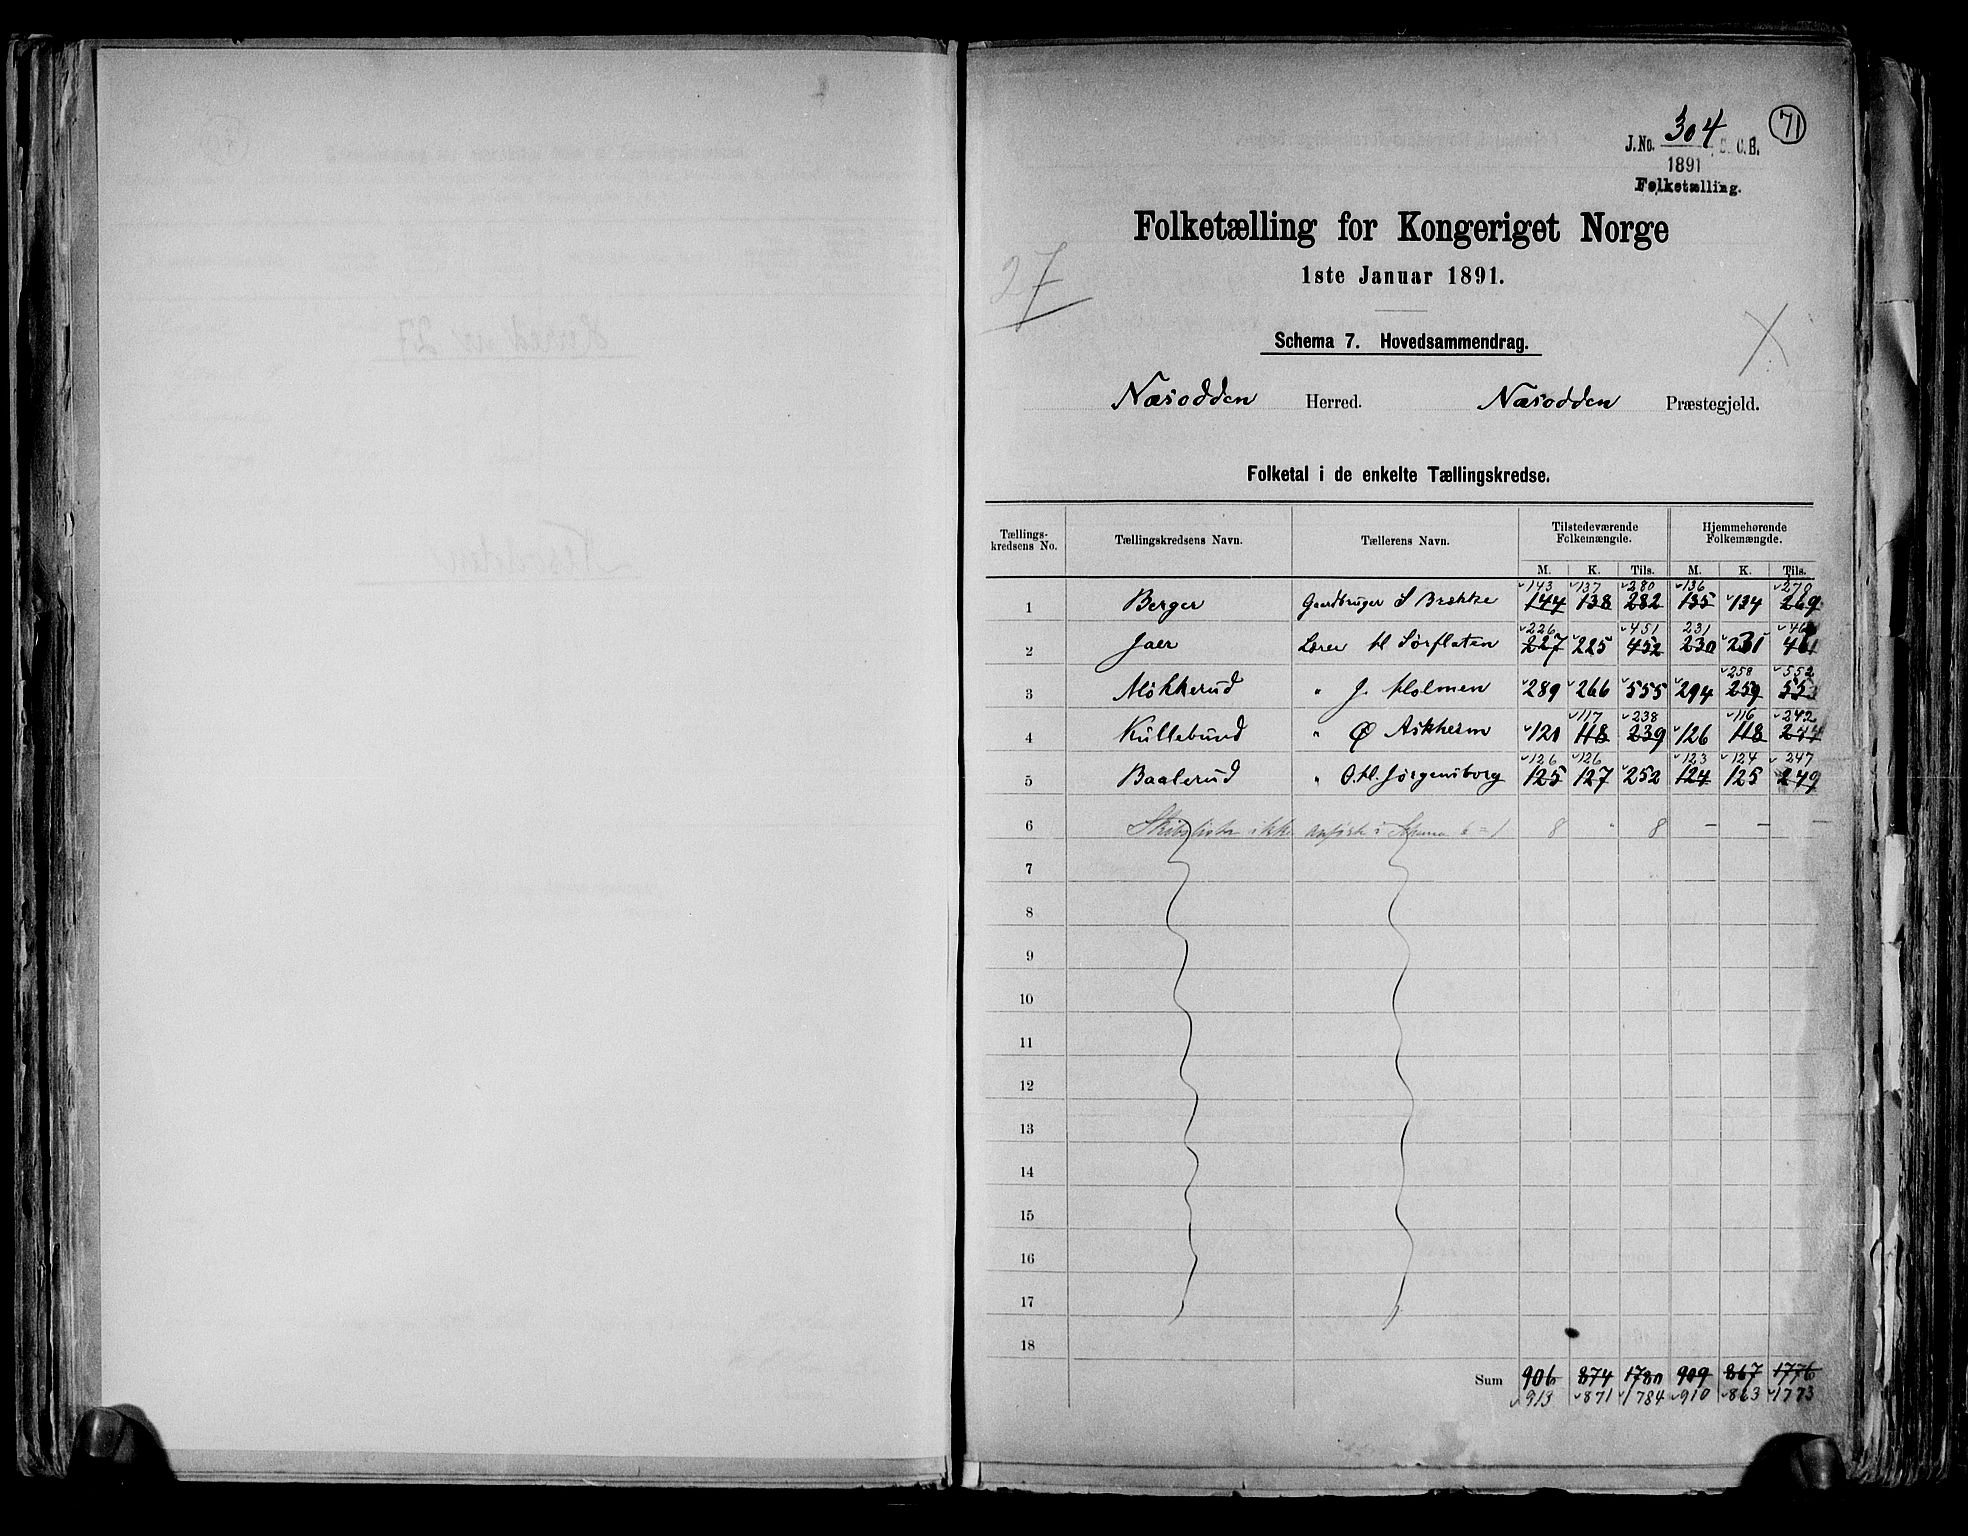 71
J. No. 304 S. C. B.
1891
Folketælling.
Folketælling for Kongeriget Norge
1ste Januar 1891.
27
Schema 7. Hovedsammendrag.
X
Næsodden Herred. Næsodden Præstegjeld.
Folketal i de enkelte Tællingskredse.
Tællings-kredsens No. Tællingskredsens Navn. Tællerens Navn. Tilstedeværende Folkemængde. Hjemmehørende Folkemængde.
M. K. Tils. M. K. Tils.
143 137 280 136 270
1 Berger Gaardbruger S Brække 144 138 282 135 134 269
226 451 231 462
2 Jaer Lærer H Sørflaten 227 225 452 230 231 461
258 552
3 Møkkerud " J. Holmen 289 266 555 294 259 553
117 238 116 242
4 Kullebund " Ø Askheim 121 118 239 126 118 244
126 126 123 124 247
5 Baalerud " O. H. Jørgensborg 125 127 252 124 125 249
6 Skibslister ikke anført i Schema 6 = 1 8 " 8 – – –
7
8
9
10
11
12
13
14
15
16
17
18
Sum 906 874 1780 909 867 1776
913 871 1784 910 863 1773
Herred nr 27
Nesodden